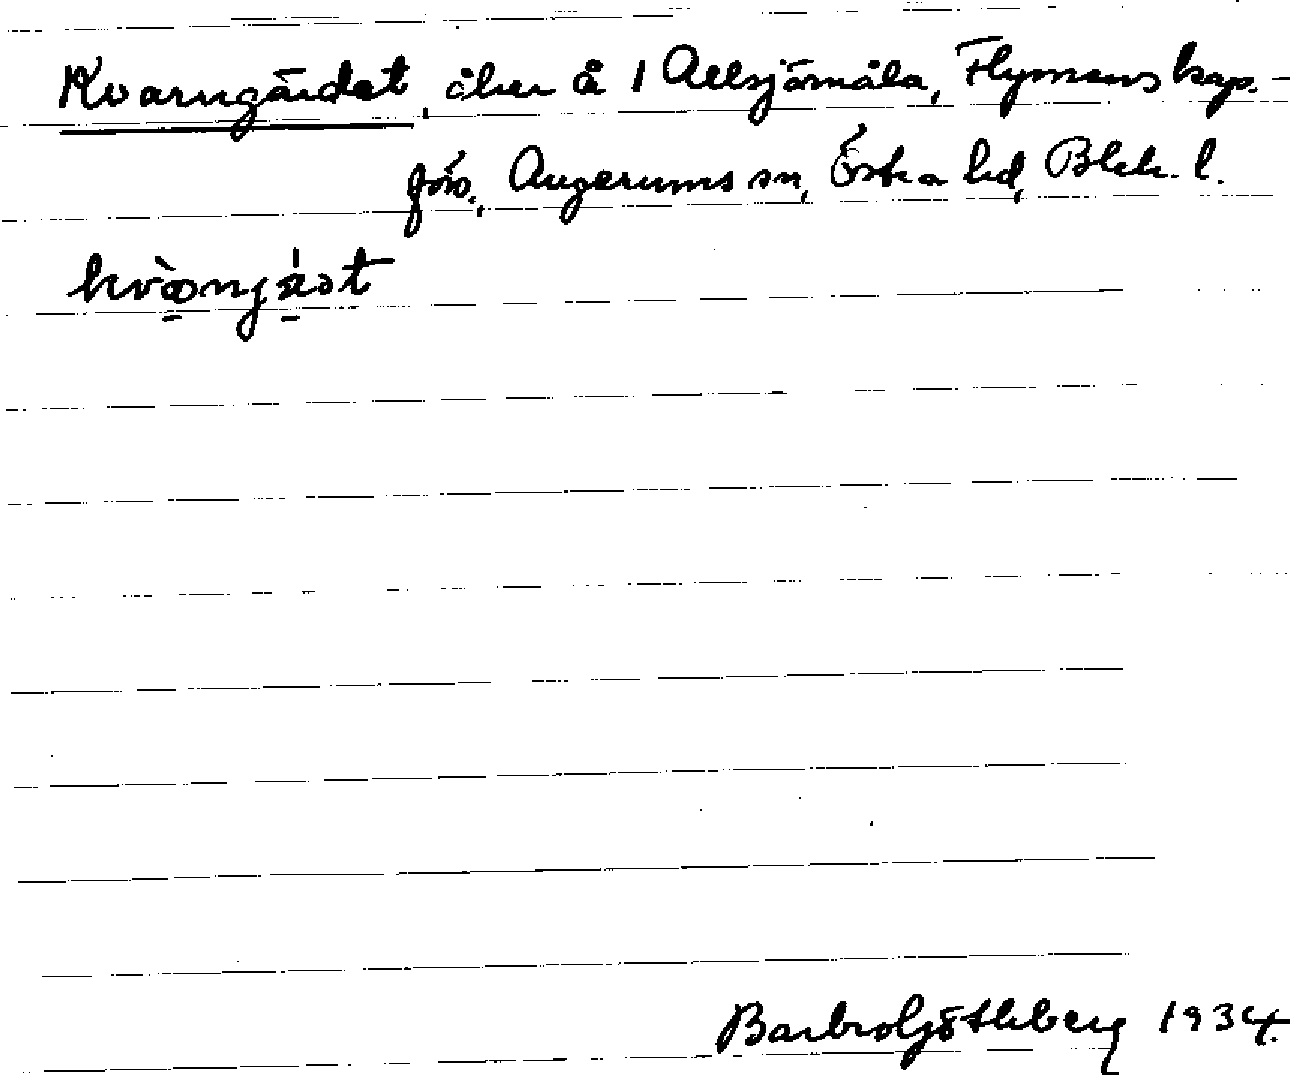 Kvarngärdet, åker å 1 Allsjömåla, Flymens kap.-
förs., Augerums sn, Östra hd, Blek. l.
Barbro Götheberg 1934.